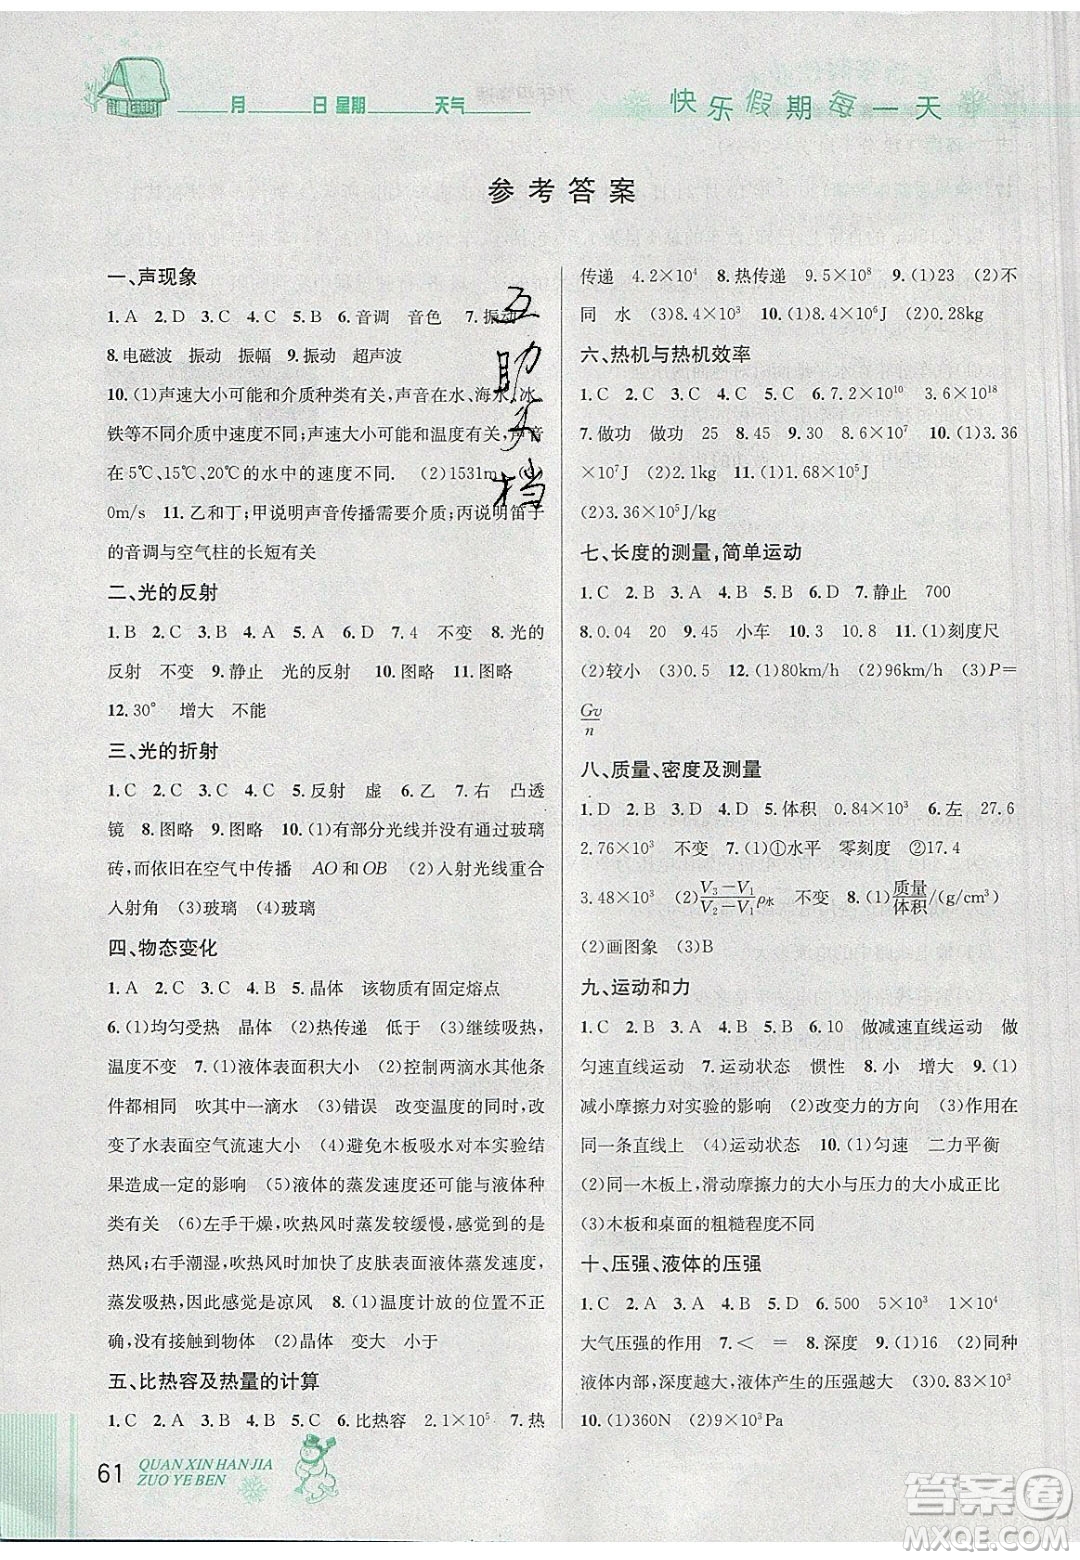 月 日 星期 天气
快乐假期每一天
参考答案
一、声现象
1.A 2.D 3.C 4.C 5.B 6.音调 音色 7.振动
8.电磁波 振动 振幅 9.振动 超声波
10.(1)声速大小可能和介质种类有关,声音在水、海水、冰、
铁等不同介质中速度不同;声速大小可能和温度有关,声音
在5℃、15℃、20℃的水中的速度不同. (2)1531m
0m/s 11.乙和丁;甲说明声音传播需要介质;丙说明笛子
的音调与空气柱的长短有关
二、光的反射
1.B 2.C 3.B 4.C 5.D 6.D 7.4 不变 8.光的
反射 不变 9.静止 光的反射 10.图略 11.图略
12.30° 增大 不能
三、光的折射
1.C 2.C 3.A 4.C 5.反射 虚 6.乙 7.右 凸透
镜 8.图略 9.图略 10.(1)有部分光线并没有通过玻璃
砖,而依旧在空气中传播 AO和OB (2)入射光线重合
入射角 (3)玻璃 (4)增大
四、物态变化
1.A 2.C 3.A 4.D 5.晶体 该物质有固定熔点
6.(1)均匀受热 晶体 (2)热传递 低于 (3)继续吸热,
温度不变 7.(1)液体表面积大小 (2)控制两滴水其他条
件都相同 吹其中一滴水 (3)错误 改变温度的同时,改
变了水表面空气流速大小 (4)避免木板吸水对本实验结
果造成一定的影响 (5)液体的蒸发速度还可能与液体种
类有关 (6)左手干燥,吹热风时蒸发较缓慢,感觉到的是
热风;右手潮湿,吹热风时加快了皮肤表面液体蒸发速度,
蒸发吸热,因此感觉是凉风 8.(1)温度计放的位置不正
确,没有接触到物体 (2)晶体 变大 小于
五、比热容及热量的计算
1.C 2.A 3.B 4.B 5.C 6.比热容 2.1×10⁵ 7.热
传递 4.2×10⁴ 8.热传递 9.5×10⁸ 9.(1)23 (2)不
同 水 (3)8.4×10³ 10.(1)8.4×10⁶J (2)0.28kg
六、热机与热机效率
1.C 2.C 3.B 4.C 5.C 6.7.2×10¹⁰ 3.6×10¹⁸
7.做功 做功 25 8.30 9.30 8.6×10⁷ 10.(1)3.36
×10⁵J (2)2.1kg 11.(1)1.68×10⁵J
(2)3.36×10⁵J/kg
七、长度的测量,简单运动
1.C 2.B 3.A 4.B 5.B 6.D 7.静止 700
8.0.04 20 9.45 小车 10.3 10.8 11.(1)刻度尺
(2)较小 (3)0.5 12.(1)80km/h (2)96km/h (3)P=
Gv/n
八、质量、密度及测量
1.D 2.B 3.A 4.D 5.体积 0.84×10³ 6.左 27.6
2.76×10³ 不变 7.(1)①水平 零刻度 ②17.4
3.48×10³ (2)(V₃−V₁)/(V₂−V₁)ρ水 不变 8.(1)质量/体积/(g/cm³)
(2)画图象 (3)B
九、运动和力
1.C 2.B 3.A 4.D 5.B 6.10 做减速直线运动 做
匀速直线运动 7.运动状态 惯性 8.小 增大 9.(1)
减小摩擦力对实验的影响 (2)改变力的方向 (3)作用在
同一条直线上 (4)运动状态 10.(1)匀速 二力平衡
(2)同一木板上,滑动摩擦力的大小与压力的大小成正比
(3)木板和桌面的粗糙程度不同
十、压强、液体的压强
1.C 2.B 3.A 4.B 5.D 6.500 5×10³ 1×10⁴
大气压强的作用 7.< = 8.深度 9.(1)16 (2)同种
液体内部,深度越大,液体产生的压强越大 (3)0.83×10³
10.(1)360N (2)9×10³Pa
互助文档
61
QUAN XIN HAN JIA
ZUO YE BEN
答案圈
MXQE.COM